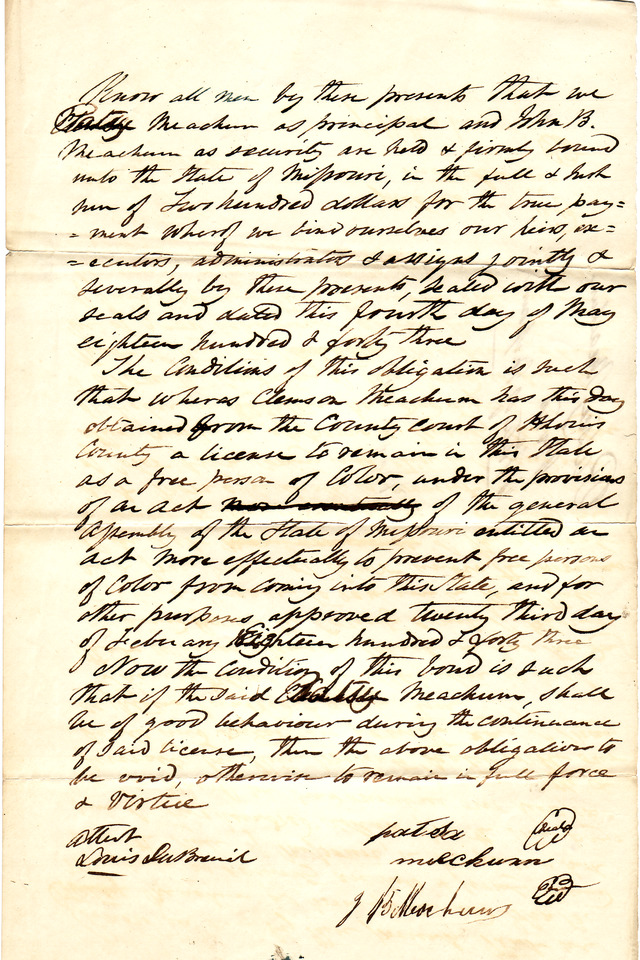 Know all men by these presents that we
Meachum as principal and John B.
Meachum as security are held & firmly bound
unto the State of Missouri, in the full & Just
sum of Two hundred dollars for the true pay=
=ment wherof we bind ourselves our heirs, ex=
=ecutors, administrators & assigns jointly &
severally by these presents, sealed with our
seals and dated this fourth day of May
eighteen hundred & forty three
The Conditions of this obligation is such
that wheras Clemson Meachum has this day
obtained from the County court of St Louis
County a license to remain in this State
as a free person of Color, under the provisions
of an act more eventually of the general
Assembly of the State of Missouri entitled an
act more effectually to prevent free persons
of Color from coming into this State, and for
other purposes, approved twenty third day
of February Eighteen hundred & forty three
Now the Condition of this bond is such
that if the said Meachum, shall
be of good behaviour during the continuance
of said license, then the above obligation to
be void, otherwise to remain in full force
& Virtue
Attest
Louis DuBreuil
mechum
J B Meachum